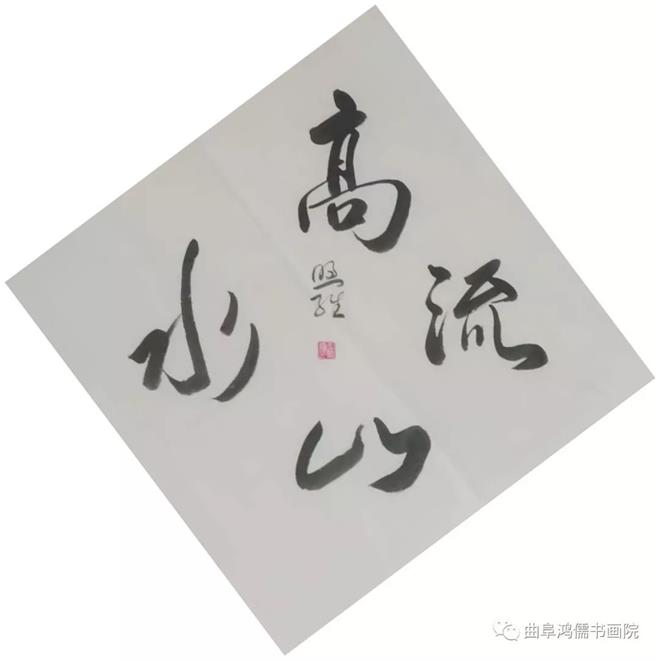 高山
流水
曲阜鸿儒书画院